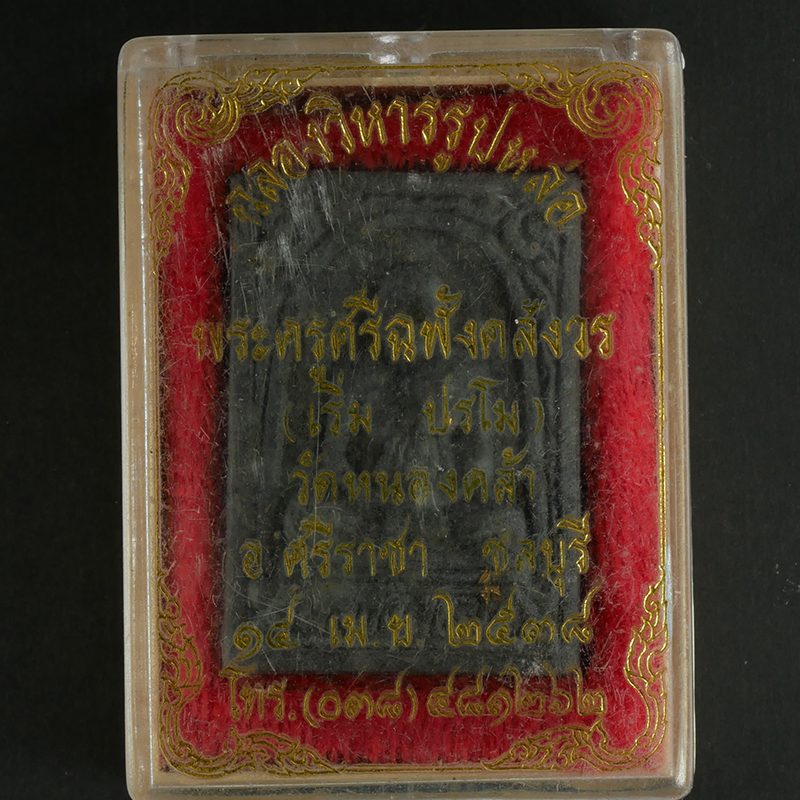 ฉลองวิหารรูปหล่อ
พระครูศรีฉฬังคสังวร
(เริ่ม ปรโม)
วัดหนองคล้า
อ ศรีราชา ชลบุรี
๑๔ เม.ย ๒๕๓๘
โทร.(๐๓๘)๔๘๑๒๖๒